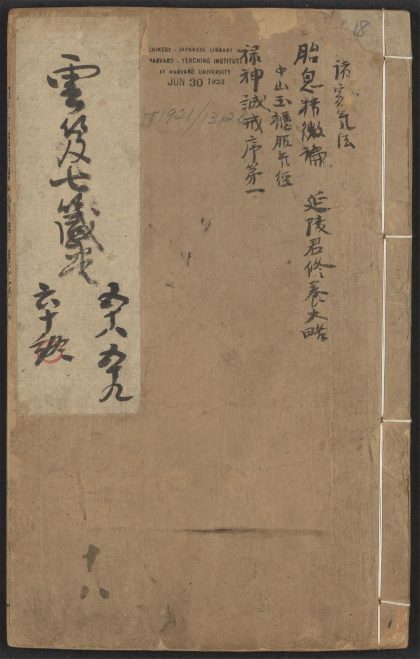 18
諸家気法
胎息精微論 延陵君修養大略
中山玉櫃服气經
禄神誡戒序第一
CHINESE - JAPANESE LIBRARY
HARVARD - YENCHING INSTITUTE
AT HARVARD UNIVERSITY
JUN 30 1953
T1921/1312
雲笈七籤
五十八 五十九
六十
十八